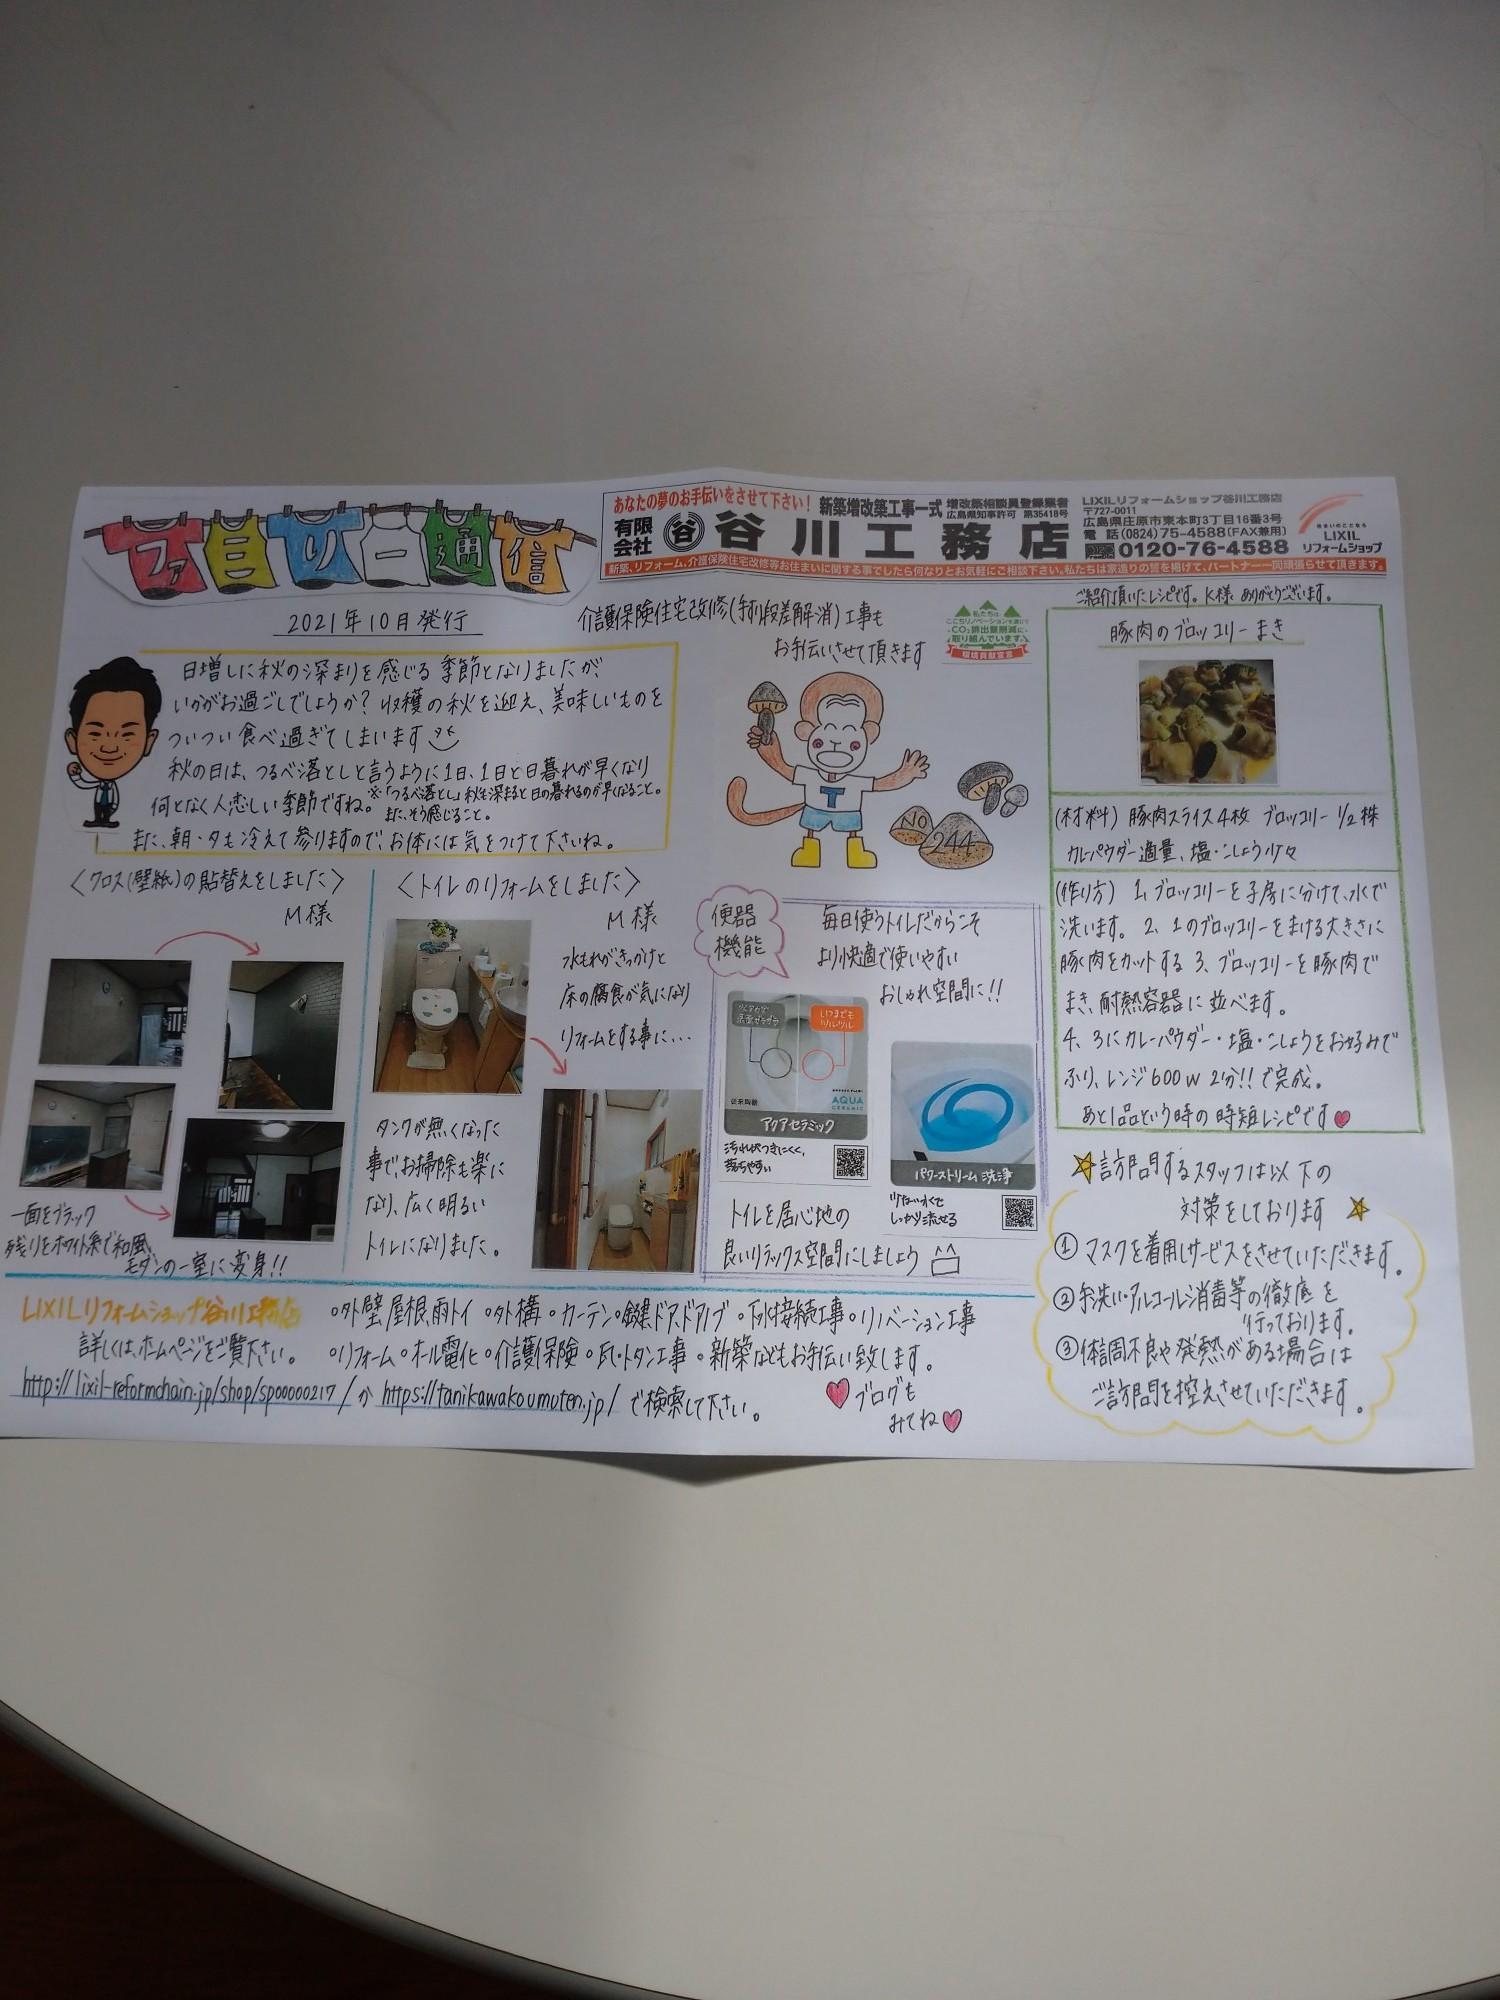 ファミリー通信
2021年10月発行
あなたの夢のお手伝いをさせて下さい!
新築増改築工事一式
増改築相談員登録業者
広島県知事許可 第35418号
有限会社
谷
谷川工務店
LIXILリフォームショップ谷川工務店
〒727-0011
広島県庄原市東本町3丁目16番3号
電話(0824)75-4588(FAX兼用)
0120-76-4588
住まいのことなら
LIXIL
リフォームショップ
新築、リフォーム、介護保険住宅改修等お住まいに関する事でしたら何なりとお気軽にご相談下さい。私たちは家造りの誓を掲げて、パートナー一同頑張らせて頂きます。
介護保険住宅改修(手すり、段差解消)工事も
お手伝いさせて頂きます
私たちは
ここちリノベーションを通じて
CO2排出量削減に
取り組んでいます。
環境貢献宣言
日増しに秋の深まりを感じる季節となりましたが、
いかがお過ごしでしょうか?収穫の秋を迎え、美味しいものを
ついつい食べ過ぎてしまいます
秋の日は、つるべ落としと言うように1日、1日と日暮れが早くなり
何となく人恋しい季節ですね。
※「つるべ落とし」秋も深まると日の暮れるのが早くなること。
また、そう感じること。
また、朝・夕も冷えて参りますので、お体には気をつけて下さいね。
T
NO
244
<クロス(壁紙)の貼替えをしました>
M様
一面をブラック
残りをホワイト系で和風、
モダンの一室に変身!!
<トイレのリフォームをしました>
M様
水もれがきっかけと
床の腐食が気になり
リフォームをする事に…
タンクが無くなった
事で、お掃除も楽に
なり、広く明るい
トイレになりました。
便器
機能
毎日使うトイレだからこそ
より快適で使いやすい
おしゃれ空間に!!
いつまでも
ツルツル
従来陶器
AQUA
CERAMIC
アクアセラミック
汚れが付きにくく、
落ちやすい
パワーストリーム洗浄
少ない水で
しっかり流せる
トイレを居心地の
良いリラックス空間にしましょう
ご紹介頂いたレシピです。K様 ありがとうございます。
豚肉のブロッコリーまき
(材料) 豚肉スライス4枚 ブロッコリー1/2株
カレーパウダー適量、塩・こしょう少々
(作り方) 1、ブロッコリーを子房に分けて、水で
洗います。2、1のブロッコリーをまける大きさに
豚肉をカットする 3、ブロッコリーを豚肉で
まき、耐熱容器に並べます。
4、3にカレーパウダー・塩・こしょうをお好みで
ふり、レンジ600w 2分!!で完成。
あと1品という時の時短レシピです
訪問するスタッフは以下の
対策をしております
①マスクを着用しサービスをさせていただきます。
②手洗い・アルコール消毒等の徹底を
行っております。
③体調不良や発熱がある場合は
ご訪問を控えさせていただきます。
LIXILリフォームショップ谷川工務店
詳しくは、ホームページをご覧下さい。
○外壁、屋根、雨トイ ○外構 ○カーテン ○鍵、ドア、ドアノブ ○下水接続工事 ○リノベーション工事
○リフォーム ○オール電化 ○介護保険 ○瓦・トタン工事 ○新築などもお手伝い致します。
http://lixil-reformchain.jp/shop/sp00000217/ か https://tanikawakoumuten.jp/ で検索して下さい。
ブログも
みてね